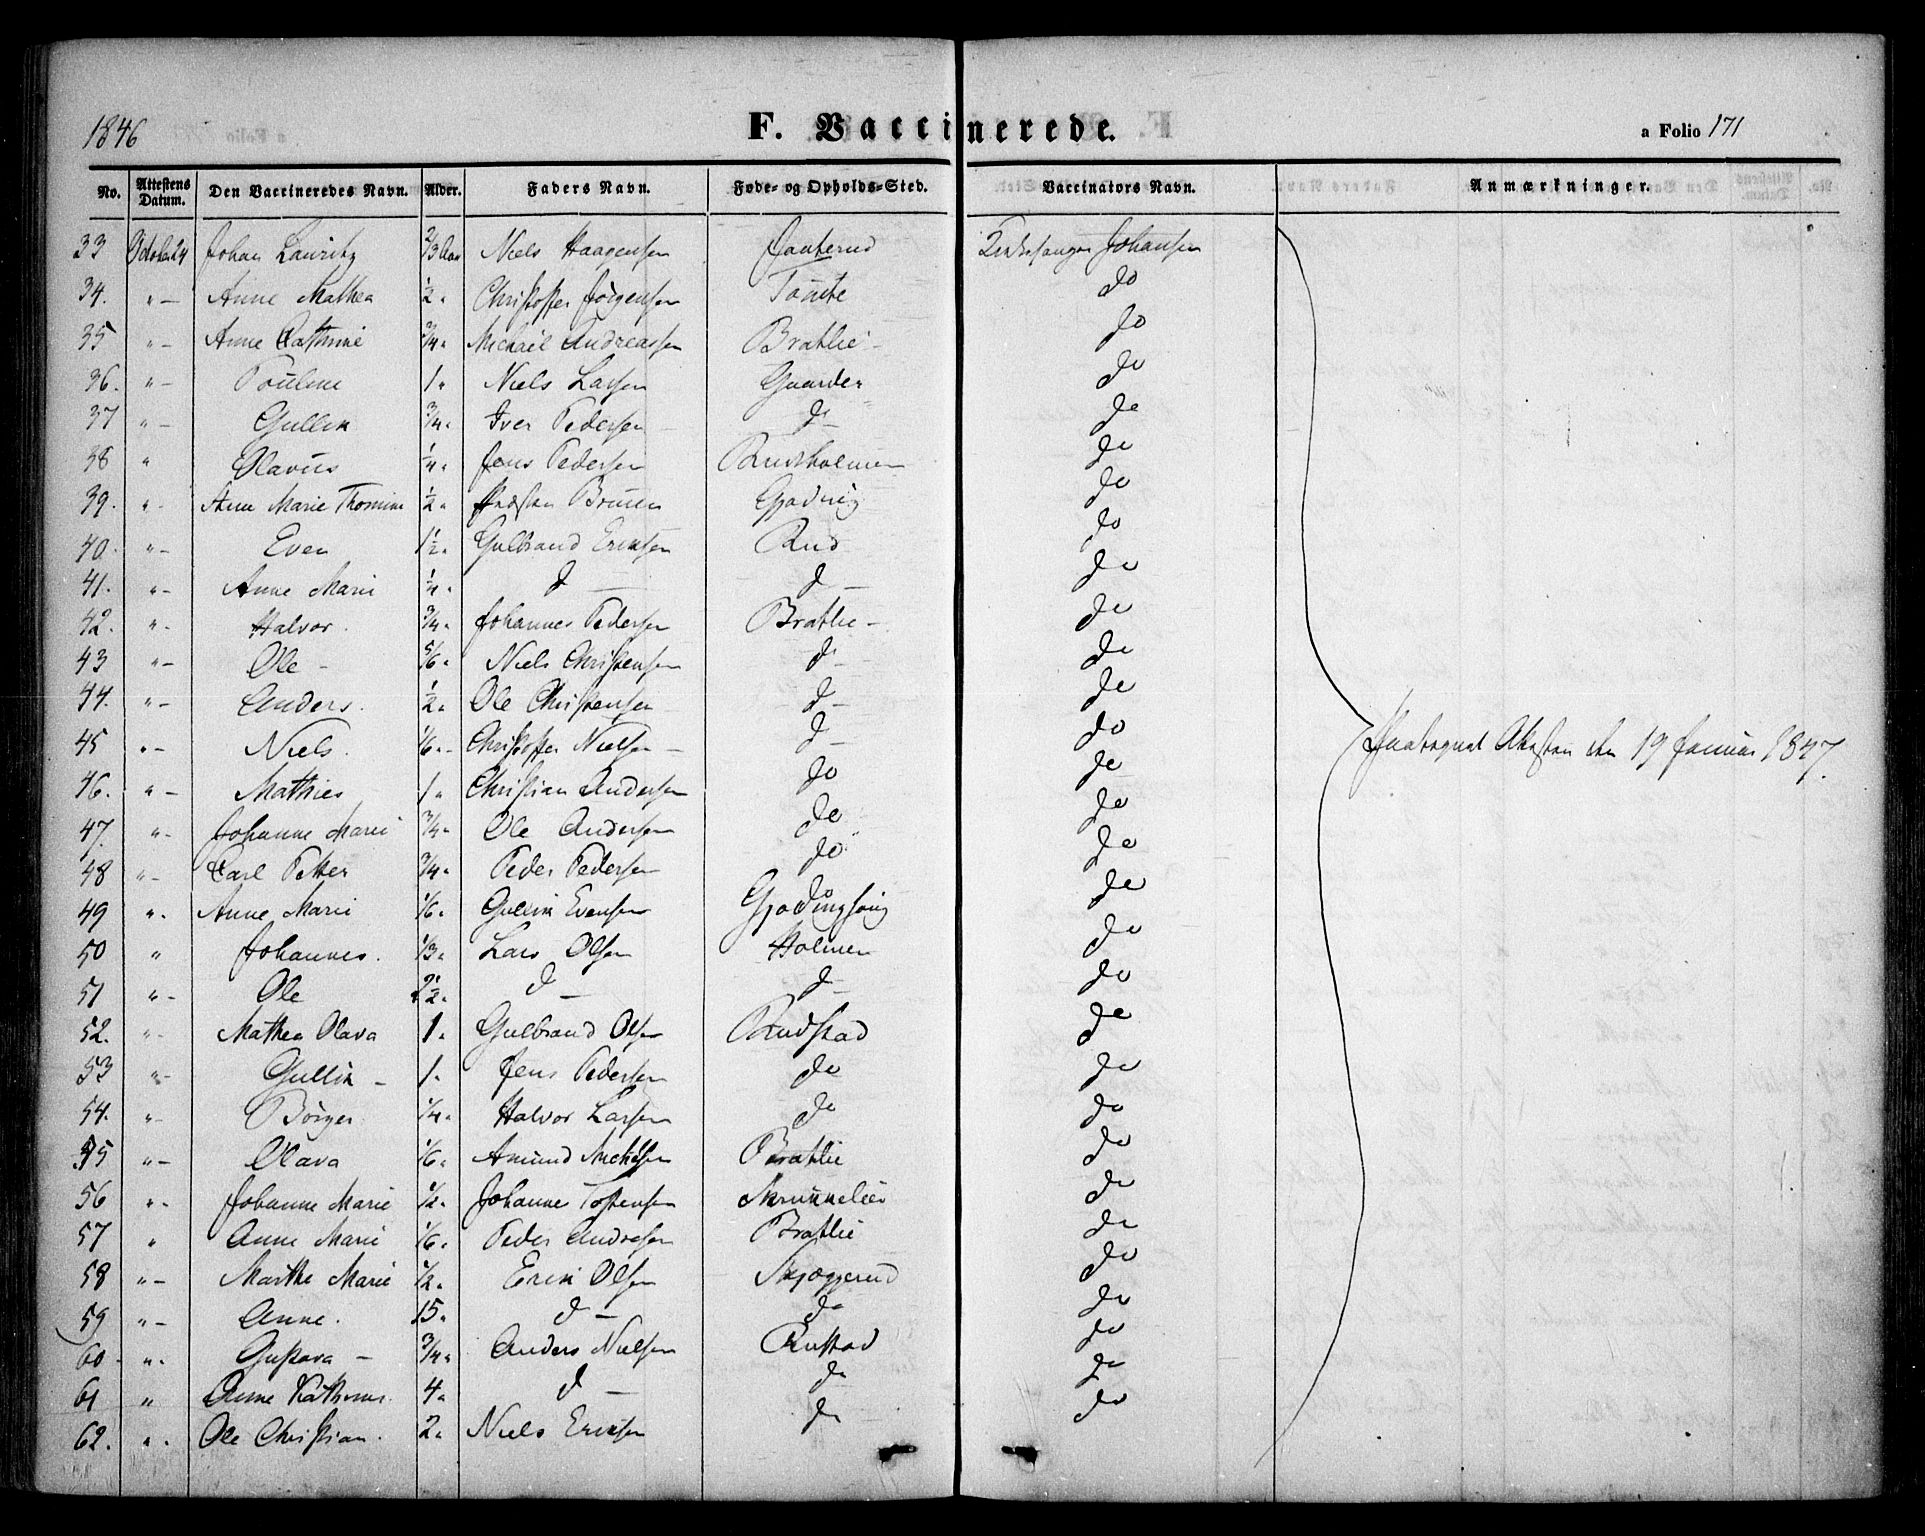 1846
F. Vaccinerede.
a Folio 171
No. Attestens Datum. Den Vaccineredes Navn. Alder. Faders Navn. Føde- og Opholds-Sted. Vaccinators Navn. Anmærkninger.
33 October 24 Johan Lauritz 2/3 Aar Niels Haagensen Jonterud Kirkesanger Johansen
34. "- Anne Mathea 1/2 " Christoffer Jørgensen Tomte do
35 "- Anne Cathrine 3/4 " Michael Andreassen Bratlie - do
36. "- Pouline 1 " Niels Larsen Gaarder do
37 "- Gullik 3/4 " Iver Pedersen - d- do
38 " Olavus 1/4 " Jens Pedersen Rudsholmen do
39. "- Anne Marie Thomine 1/2 " Præsten Bruun Gjøding do
40. "- Even 1 1/2 " Gulbrand Eriksen Rud do
41. "- Anne Marie 1/4 " d- d- do
42. "- Halvor. 3/4 " Johannes Pedersen Bratlie - do
43 "- Ole - 5/6 " Niels Christensen d- do
44. "- Anders. 1/2 " Ole Christensen d- do
45 "- Niels. 1/6 " Christoffer Nielsen - d- do Indtegnet Attesten den 19 Januar 1847.
46. "- Mathies 1 " Christian Andersen do do
47. "- Johanne Marie 3/4 " Ole Andersen do do
48 "- Carl Petter 3/4 " Peder Pedersen do do
49 "- Anne Marie 1/6 " Gullik Evensen do do
50 " Johannes. 1/3 " Lars Olsen Holmen do
51 "- Ole 2 1/2 " d- d- do
52. "- Mathea Olava 1 " Gulbrand Olsen Rudstad do
53 "- Gullik - 1 " Jens Pedersen do do
54. "- Börger 1/4 " Halvor Larsen do do
55 "- Olava 1/6 " Amund Michelsen Bratlie do
56 "- Johanne Marie 1/2 " Johanne Tostensen do
57 " Anne Marie 1/6 " Peder Andresen Bratlie do
58 "- Marthe Marie 1/2 " Erik Olsen Skjæggerud do
59 "- Anne. 15 " d- do do
60 "- Gustava - 3/4 " Anders Nielsen Rustad do
61 " Anne Kathrine 4 " d- do do
62. "- Ole Christian. 2 " Niels Eriksen do do